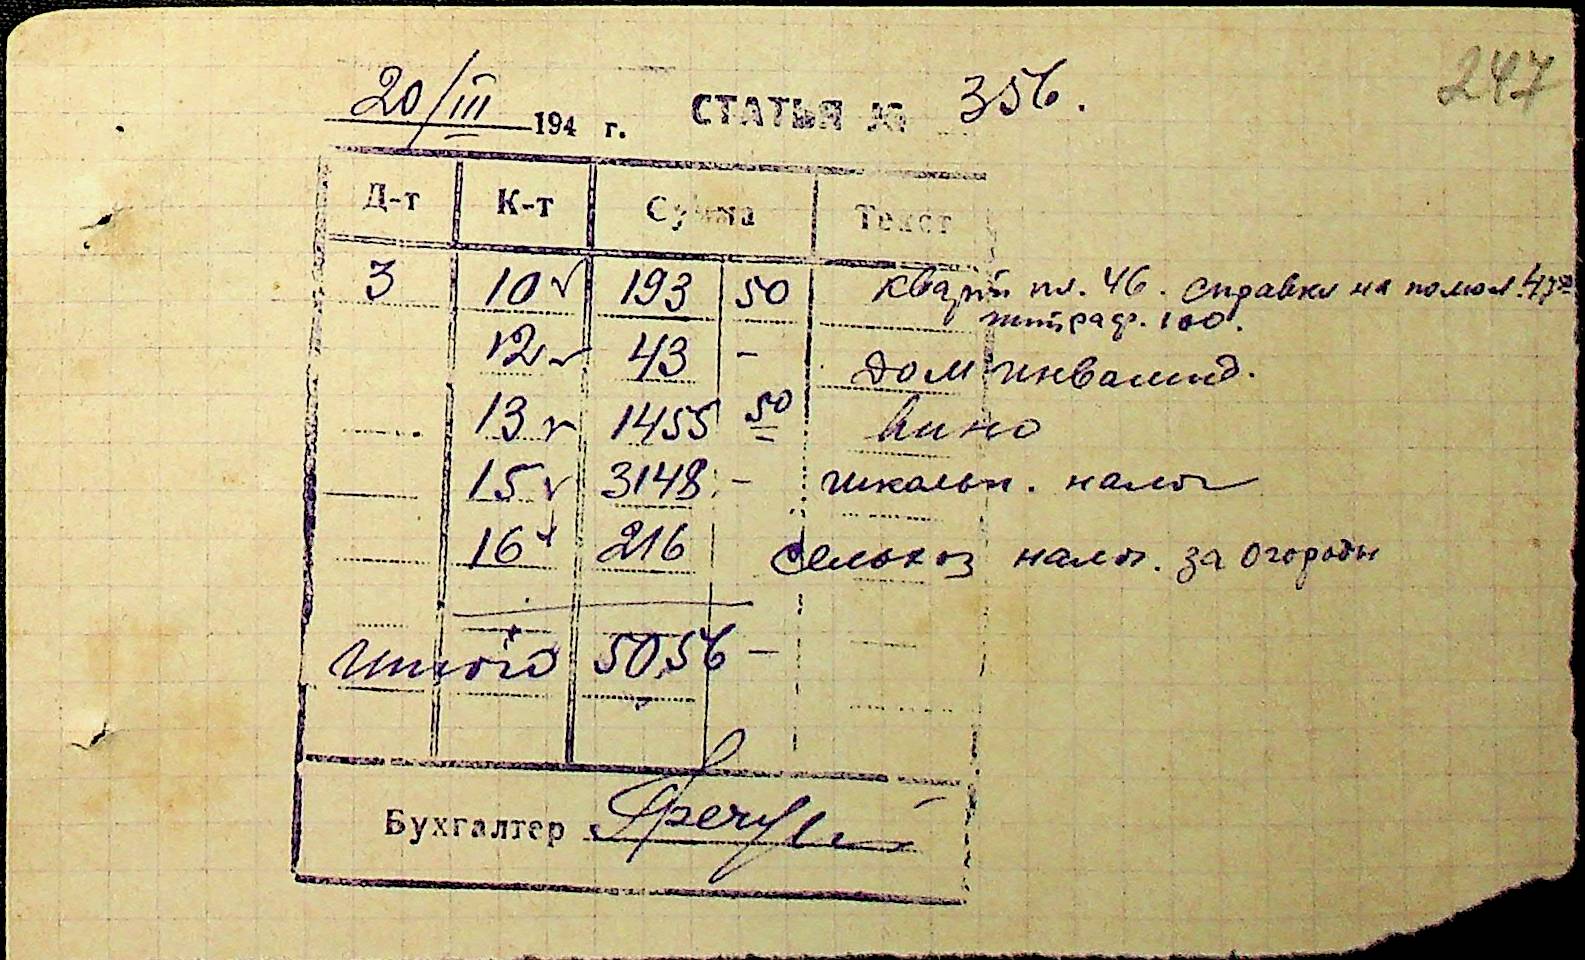 247
20/III 194 г. СТАТЬЯ № 356.
Д-т К-т Сумма Текст
3 10 193 50 кварт пл. 46. справки на помол 47 50
штраф. 100.
12 43 - Дом инвалид.
13 1455 50 Вино
15 3148 - школьн. налог
16 216 сельхоз налог. за огороды
Итого 5056 -
Бухгалтер